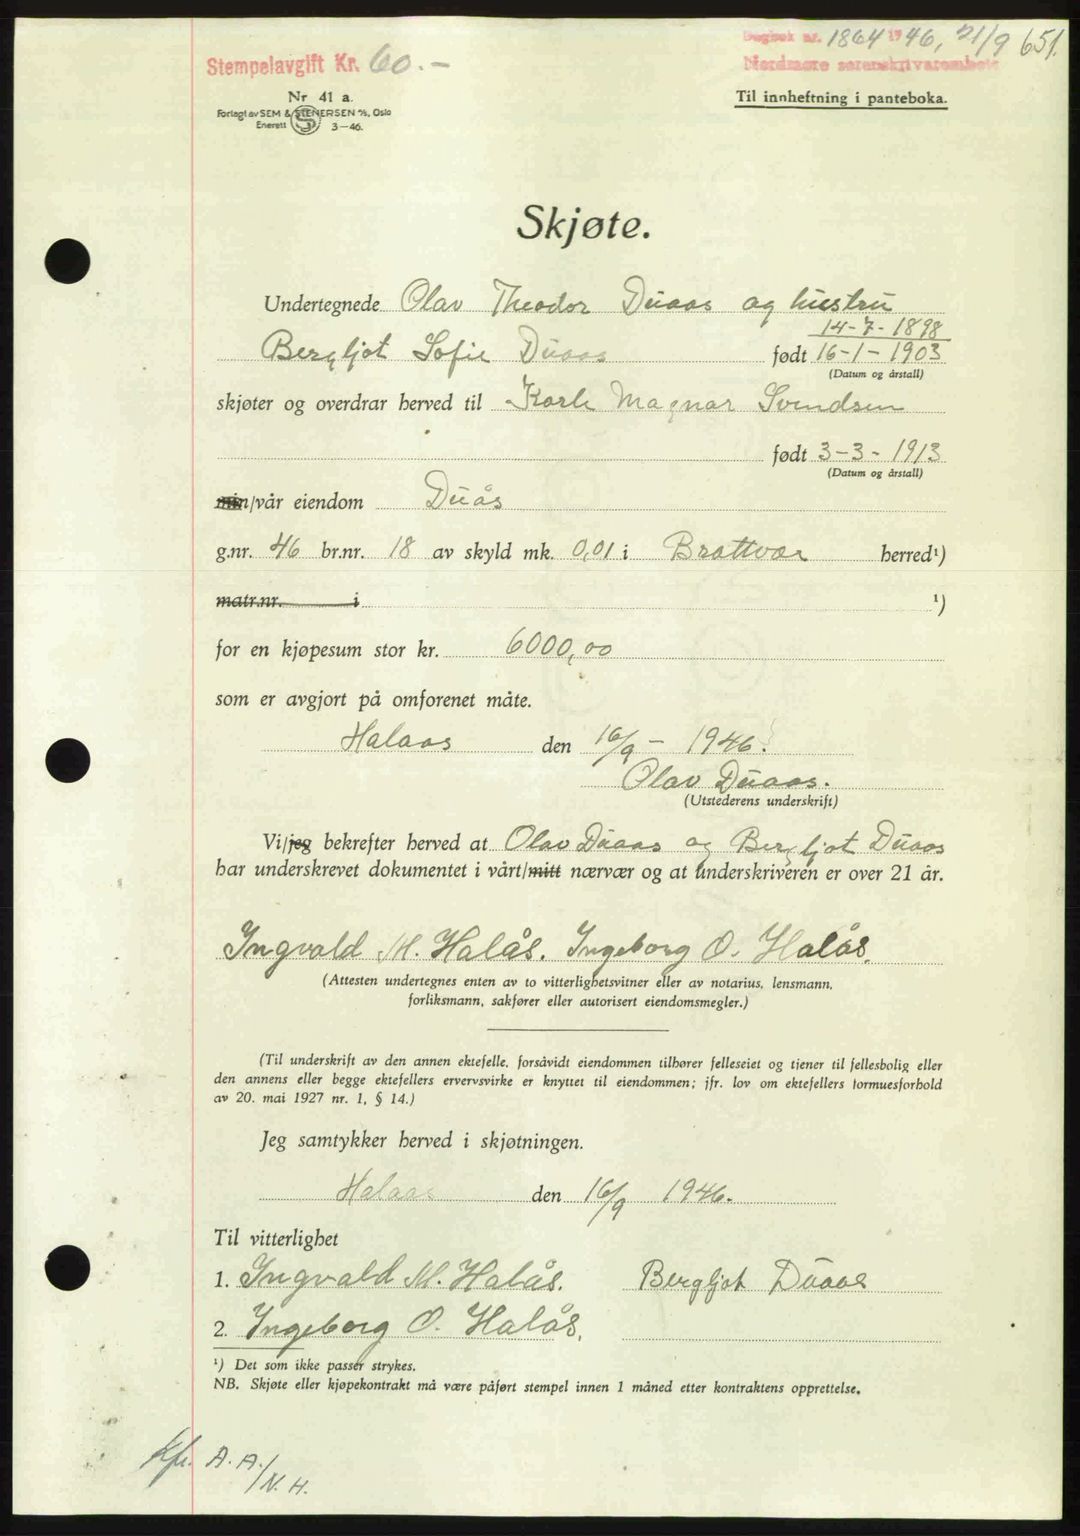 Stempelavgift Kr. 60.-
Dagbok nr. 1864 1946, 21/9 651.
Nordmøre sorenskriverembete
Nr 41 a.
Forlagt av SEM & STENERSEN A/S, Oslo
Enerett 3-46.
Til innheftning i panteboka.
Skjøte.
Undertegnede Olav Theodor Duaas og hustru
14-7-1898
Bergljot Sofie Duaas født 16-1-1903
(Datum og årstall)
skjøter og overdrar herved til Karle Magnar Svendsen
født 3-3-1913
(Datum og årstall)
min/vår eiendom Duås
g.nr. 46 br.nr. 18 av skyld mk. 0,01 i Brattvær herred¹)
matr.nr. i ¹)
for en kjøpesum stor kr. 6000,00
som er avgjort på omforenet måte.
Halaas den 16/9 - 1946.
Olav Duaas.
(Utstederens underskrift)
Vi/jeg bekrefter herved at Olav Duaas og Bergljot Duaas
har underskrevet dokumentet i vårt/mitt nærvær og at underskriveren er over 21 år.
Ingvald M. Halås. Ingeborg O. Halås.
(Attesten undertegnes enten av to vitterlighetsvitner eller av notarius, lensmann,
forliksmann, sakfører eller autorisert eiendomsmegler.)
(Til underskrift av den annen ektefelle, forsåvidt eiendommen tilhører felleseiet og tjener til fellesbolig eller
den annens eller begge ektefellers ervervsvirke er knyttet til eiendommen; jfr. lov om ektefellers formuesforhold
av 20. mai 1927 nr. 1, § 14.)
Jeg samtykker herved i skjøtningen.
Halaas den 16/9 1946.
Til vitterlighet
1. Ingvald M. Halås. Bergljot Duaas
2. Ingeborg O. Halås.
¹) Det som ikke passer strykes.
NB. Skjøte eller kjøpekontrakt må være påført stempel innen 1 måned etter kontraktens opprettelse.
A.A./N.H.